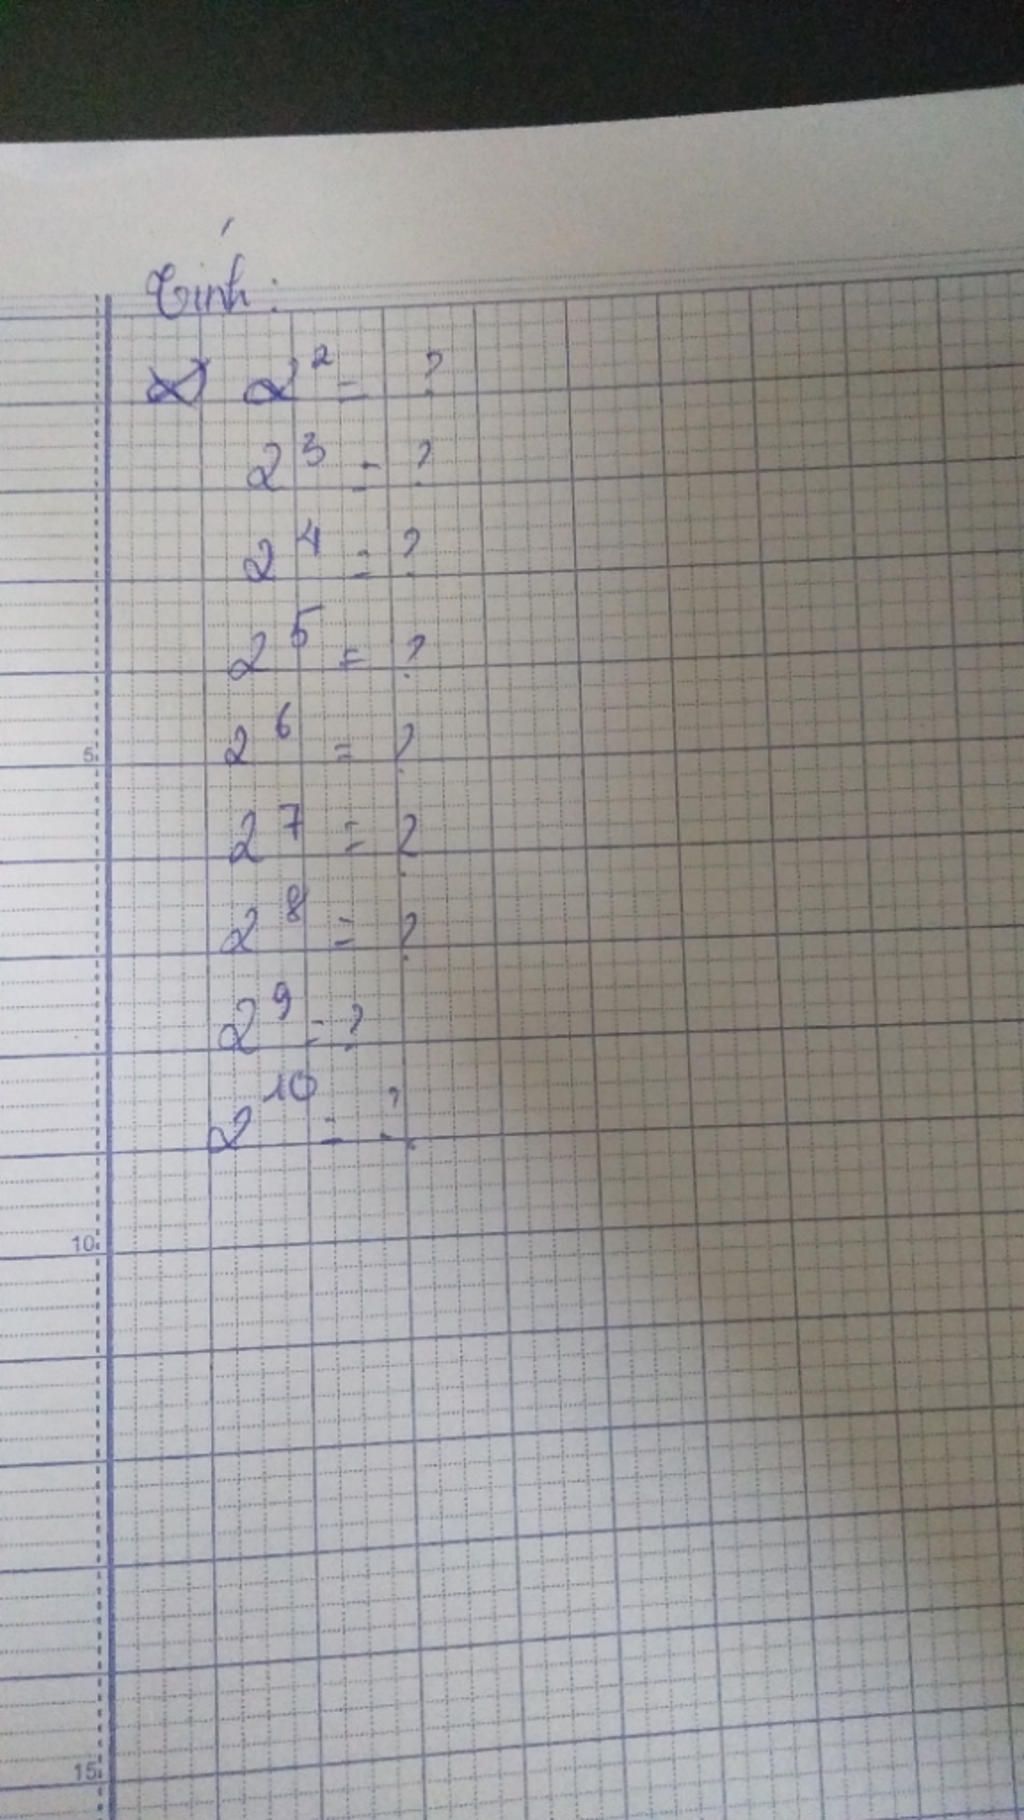 Tính:
2² = ?
2³ = ?
2⁴ = ?
2⁵ = ?
2⁶ = ?
5
2⁷ = ?
2⁸ = ?
2⁹ = ?
2¹⁰ = ?
10
15